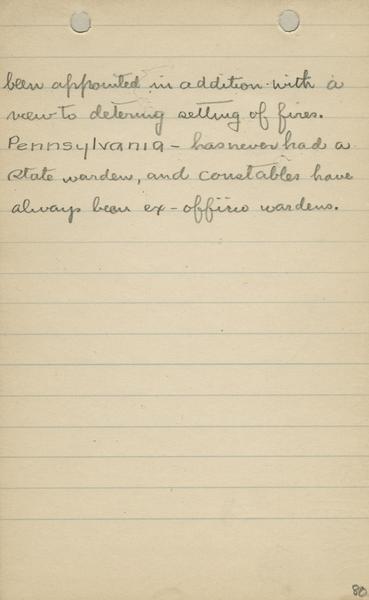 been appointed in addition with a
view to detering setting of fires.
Pennsylvania - has never had a
State warden, and constables have
always been ex-officio wardens.
80